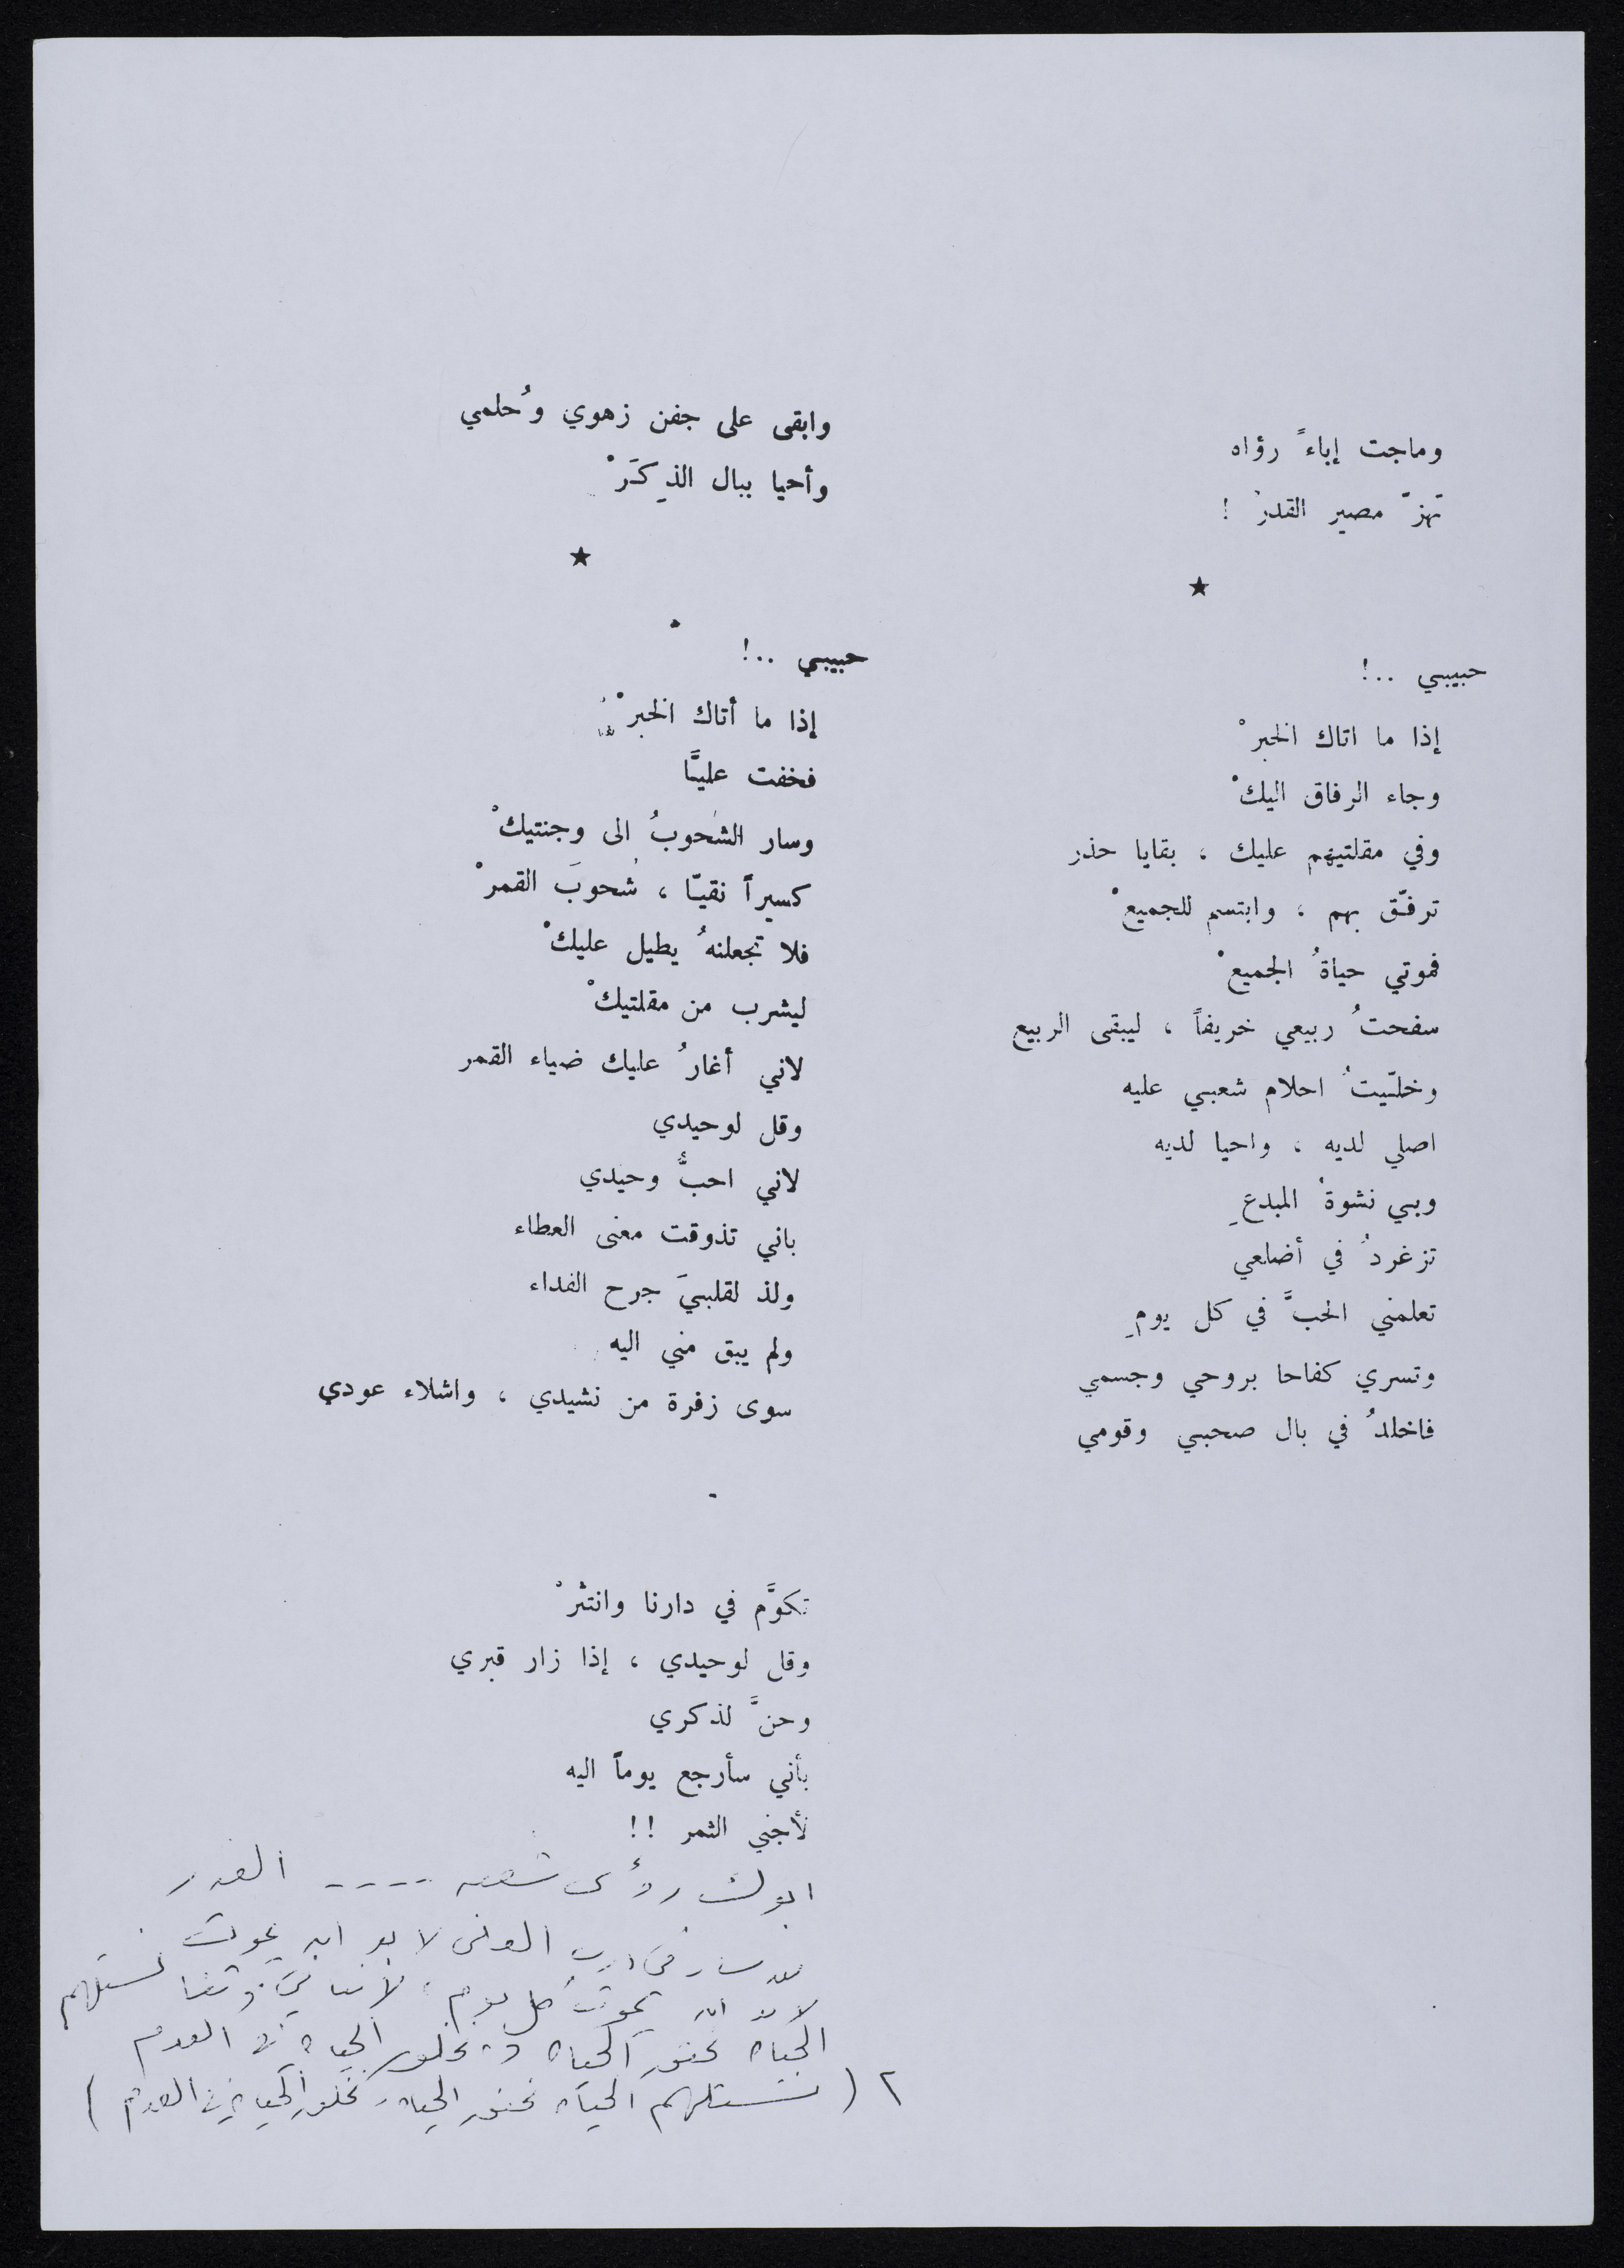 وماجت إباءً رؤاه
تهزّ مصير القدرْ !
★
حبيبي ..!
إذا ما اتاك الخبرْ
وجاء الرفاق اليكْ
وفي مقلتيهم عليك ، بقايا حذر
ترفّق بهم ، وابتسم للجميعْ
فموتي حياةُ الجميعْ
سفحتُ ربيعي خريفاً ، ليبقى الربيع
وخلّيتُ احلام شعبي عليه
اصلي لديه ، واحيا لديه
وبي نشوةُ المبدعِ
تزغردُ في أضلعي
تعلمني الحبَّ في كل يومِ
وتسري كفاحا بروحي وجسمي
فاخلدُ في بال صحبي وقومي
وابقى على جفن زهوي وُحلمي
وأحيا ببال الذِكَرْ
★
حبيبي ..!
إذا ما أتاك الخبرْ
فخفت عليَّا
وسار الشحوبُ الى وجنتيكْ
كسيراً نقيّا ، شحوبَ القمرْ
فلا تجعلنهُ يطيل عليكْ
ليشرب من مقلتيكْ
لاني أغارُ عليك ضياء القمر
وقل لوحيدي
لاني احبُّ وحيدي
باني تذوقت معنى العطاء
ولذ لقلبيَ جرح الفداء
ولم يبق مني اليه
سوى زفرة من نشيدي ، واشلاء عودي
تكوَّم في دارنا وانتثرْ
وقل لوحيدي ، إذا زار قبري
وحنَّ لذكري
بأني سأرجع يوماً اليه
لأجني الثمر !!
ابوك رؤى شعبه ---- القدر
سار في درب لا بد ان يموت
لا بد ان يموت كل يوم نستلهم
الحياة الحياة الحياة في العدم
٢ ( نستلهم الحياة الحياة الحياة في العدم )